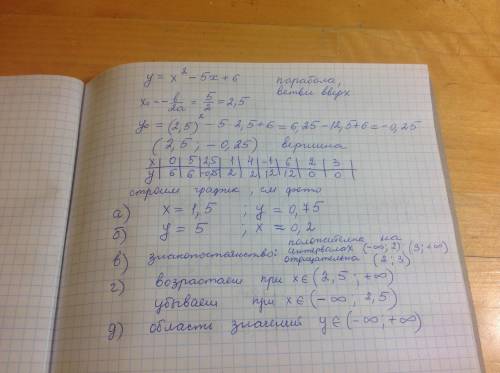 y = x² - 5x + 6 парабола, ветви вверх
x₀ = - b/2a = 5/2 = 2,5
y₀ = (2,5)² - 5 2,5 + 6 = 6,25 - 12,5 + 6 = -0,25
(2,5; -0,25) вершина
x | 0 | 5 | 2,5 | 1 | 4 | -1 | 6 | 2 | 3
y | 6 | 6 | -0,25 | 2 | 2 | 12 | 12 | 0 | 0
строим график, см фото
а) x = 1,5 ; y = 0,75
б) y = 5 ; x = 0,2
в) знакопостоянство: положительна на интервалах (-∞; 2) (3; +∞)
отрицательна (2; 3)
г) возрастает при x ∈ (2,5; +∞)
убывает при x ∈ (-∞; 2,5)
д) область значений y ∈ (-∞; +∞)